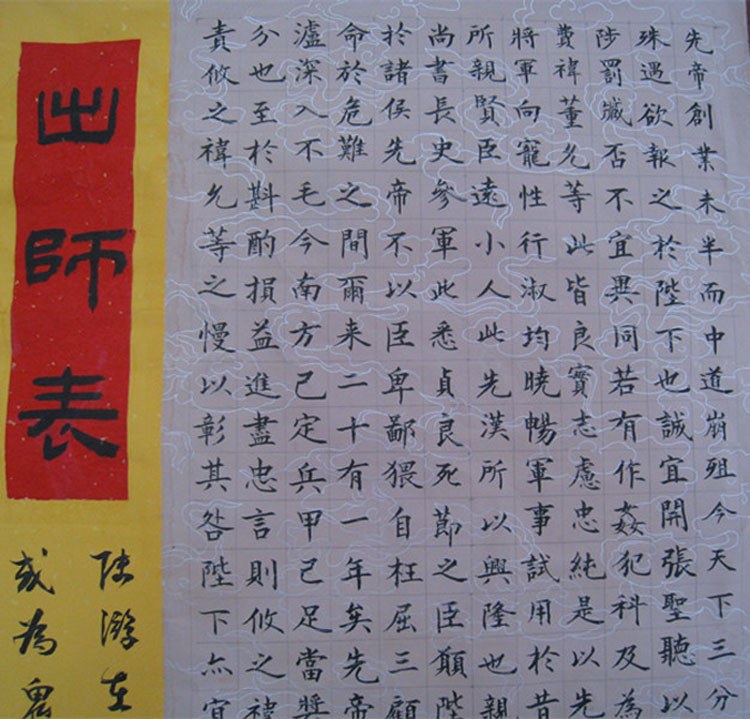 先帝創業未半而中道崩殂今天下三分
殊遇欲報之於陛下也誠宜開張聖聽以
陟罰臧否不宜異同若有作姦犯科及為
費禕董允等此皆良實志慮忠純是以先
將軍向寵性行淑均曉暢軍事試用於昔
所親賢臣遠小人此先漢所以興隆也親
尚書長史參軍此悉貞良死節之臣願陛
於諸侯先帝不以臣卑鄙猥自枉屈三顧
命於危難之間爾来二十有一年矣先帝
瀘深入不毛今南方已定兵甲已足當獎
分也至於斟酌損益進盡忠言則攸之禕
責攸之禕允等之慢以彰其咎陛下亦宜
出師表
陸游在
或為鬼